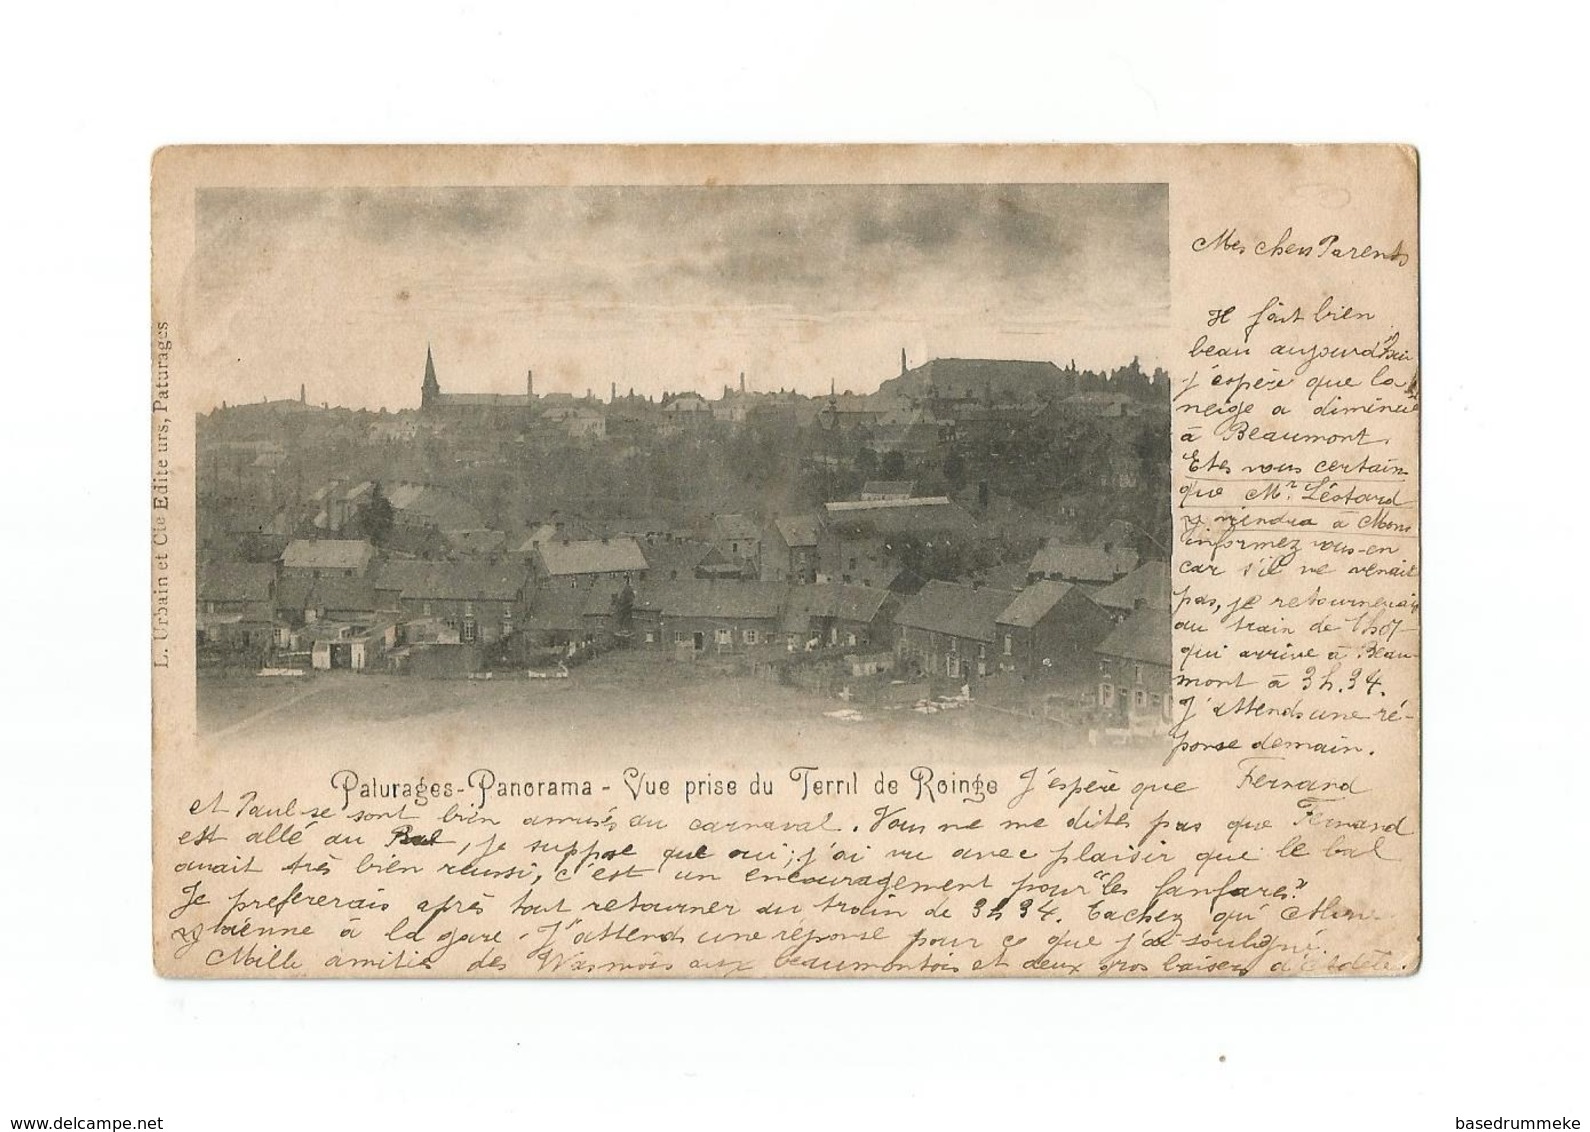 Mes chers Parents
Il fait bien
beau aujourd'hui
j'espère que la
neige a diminué
à Beaumont.
Etes vous certain
que Mr. Léotard
reviendra à Mons
informez vous-en
car s'il ne venait
pas, je retournerais
au train de 1h07
qui arrive à Beau-
mont à 3h.34.
J'attends une ré-
ponse demain.
L. Urbain et Cie Editeurs, Paturages
Paturages-Panorama - Vue prise du Terril de Roinge
J'espère que Fernand
et Paul se sont bien amusés au carnaval. Vous ne me dites pas que Fernand
est allé au Bal, je suppose que oui; j'ai vu avec plaisir que le bal
avait très bien réussi, c'est un encouragement pour "les fanfares".
Je préférerais après tout retourner au train de 3h34. Tachez qu'
vienne à la gare. J'attends une réponse pour ce que j'ai souligné.
Mille amitiés des Wasmois aux beaumontois et deux gros baisers
delcampe.net
basedrummeke